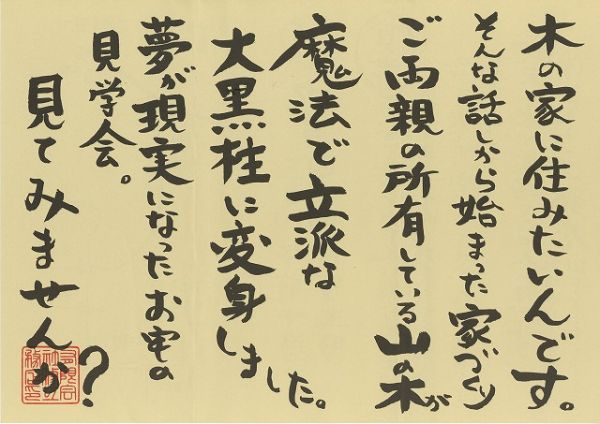 木の家に住みたいんです。
そんな話しから始まった家づくり
ご両親の所有している山の木が
魔法で立派な
大黒柱に変身しました。
夢が現実になったお宅の
見学会。
見てみませんか？